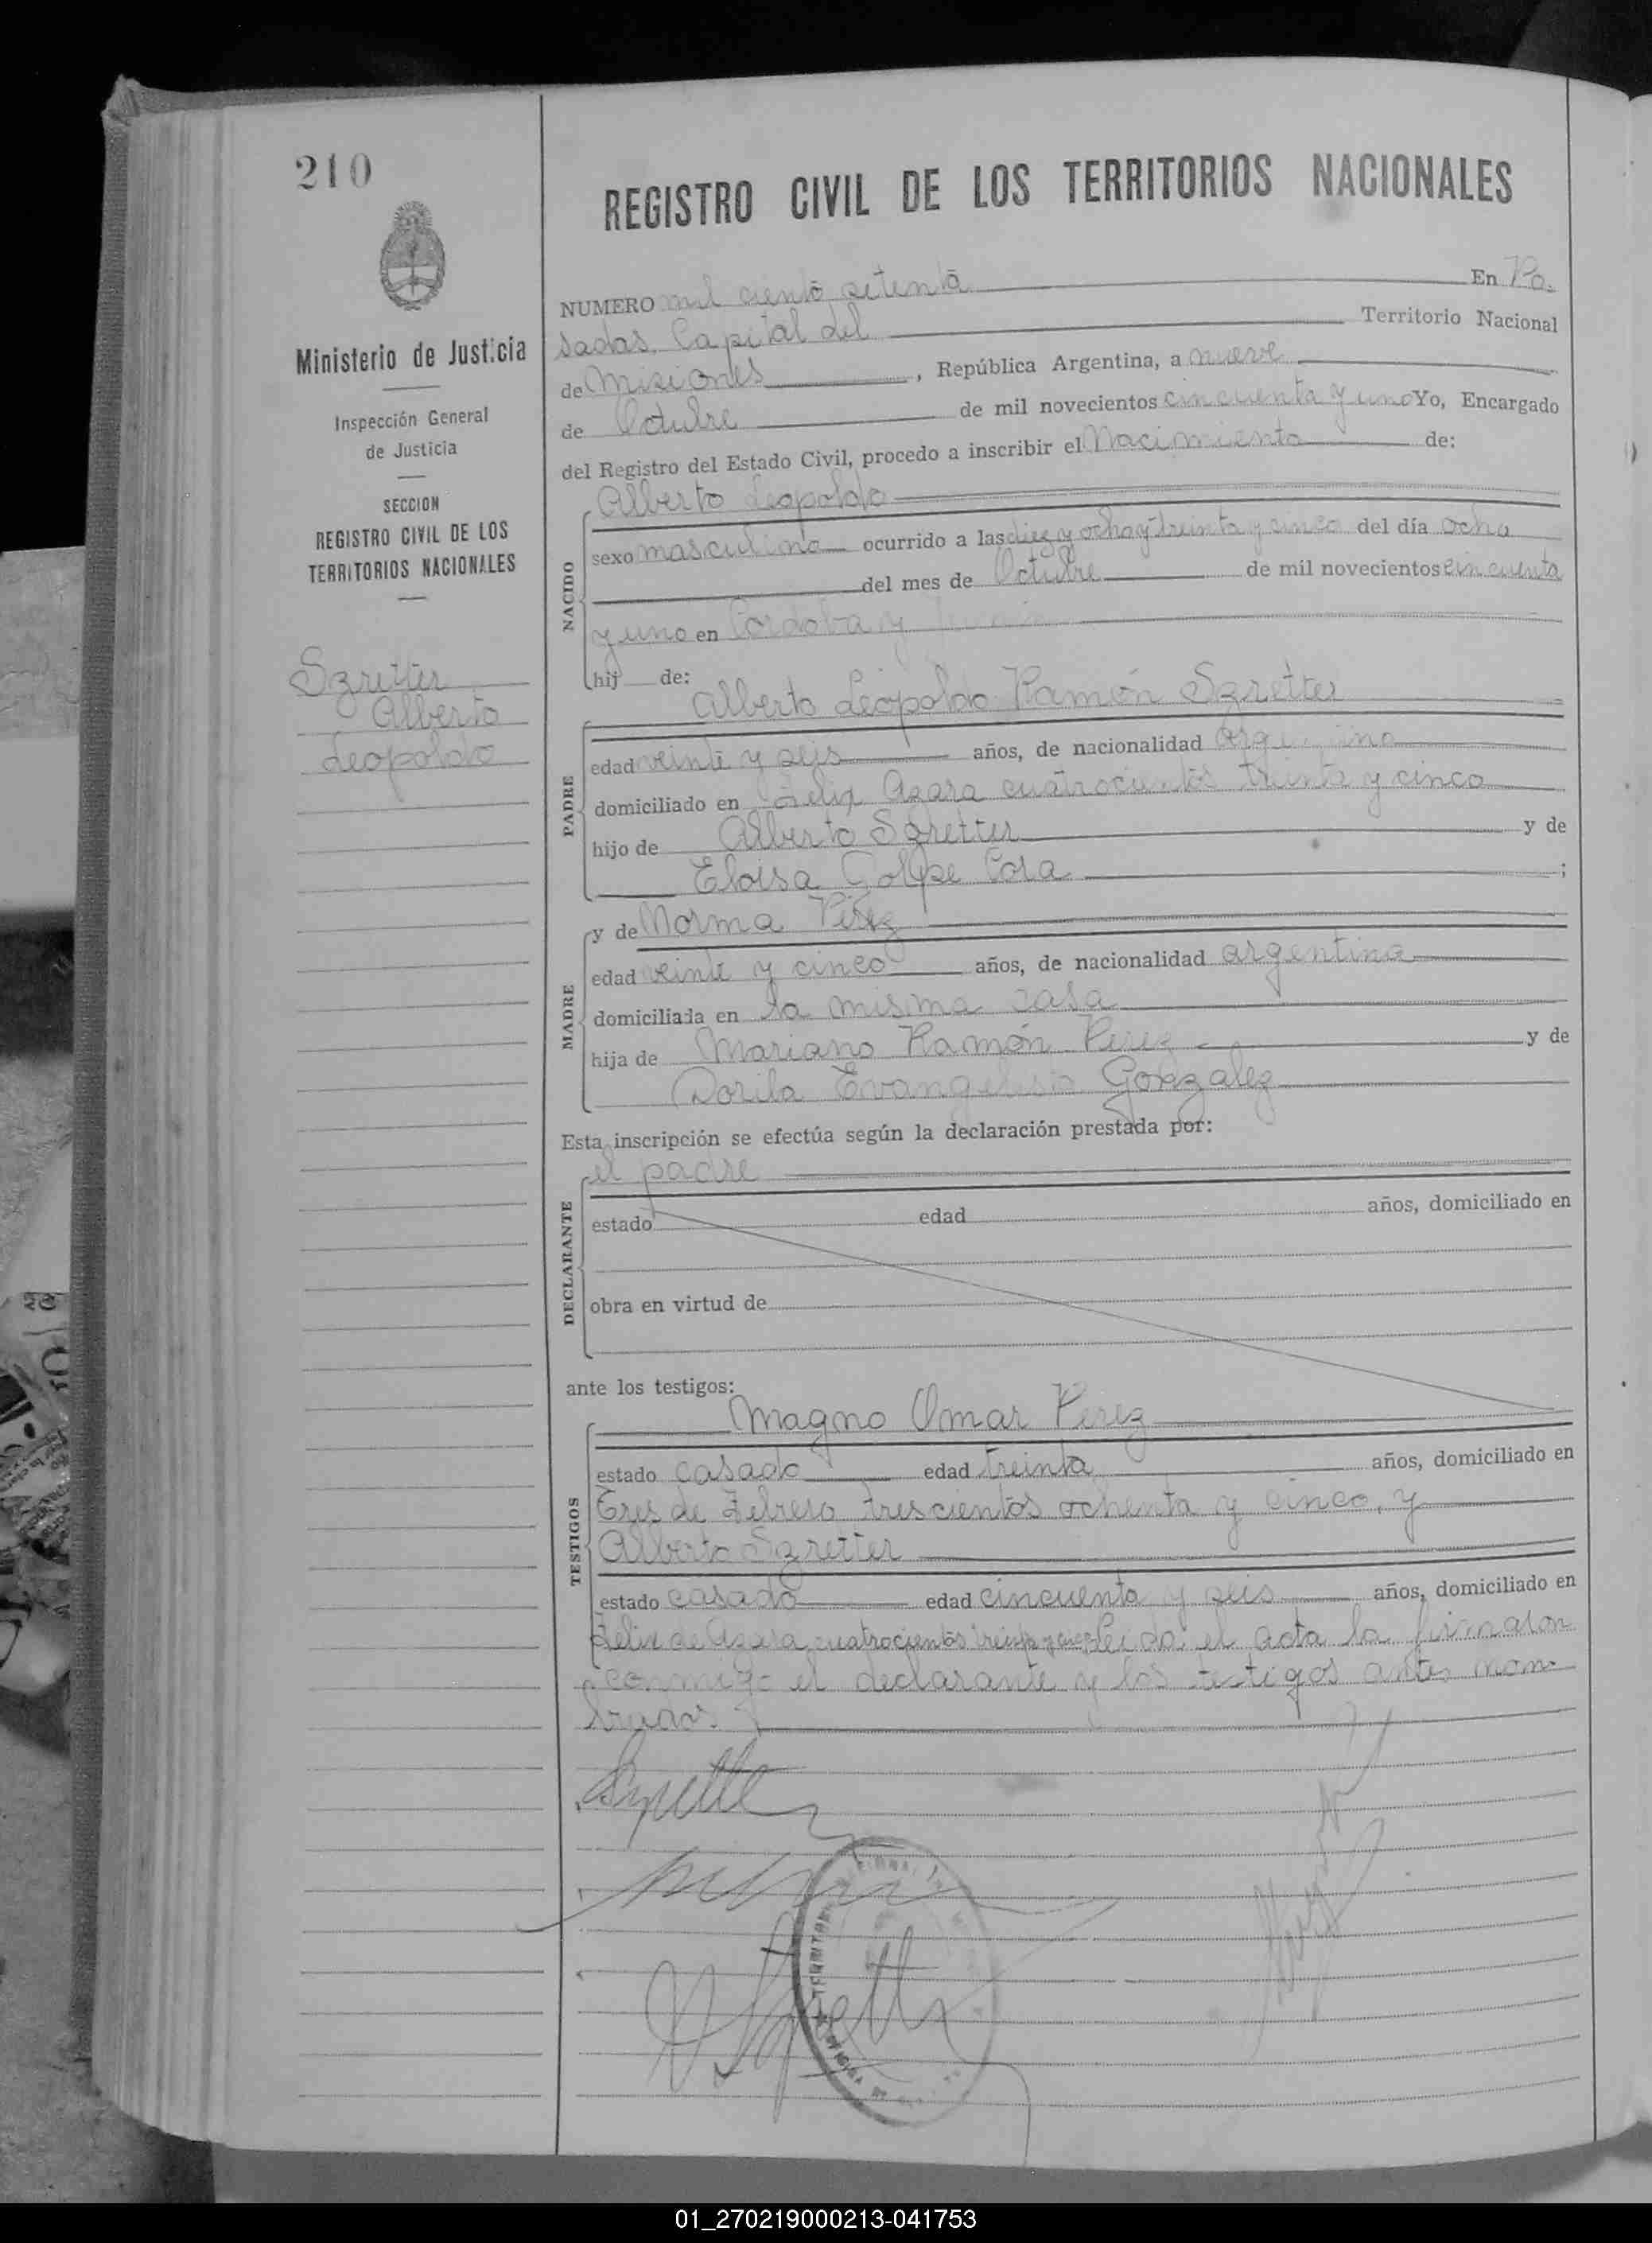 210
REGISTRO CIVIL DE LOS TERRITORIOS NACIONALES
Ministerio de Justicia
Inspección General
de Justicia
SECCION
REGISTRO CIVIL DE LOS
TERRITORIOS NACIONALES
Szretter
Alberto
Leopoldo
NUMERO mil ciento setenta En Po-
sadas, Capital del Territorio Nacional
de Misiones, República Argentina, a nueve
de Octubre de mil novecientos cincuenta y uno Yo, Encargado
del Registro del Estado Civil, procedo a inscribir el Nacimiento de:
NACIDO
Alberto Leopoldo
sexo masculino ocurrido a las diez y ocho y treinta y cinco del día ocho
del mes de Octubre de mil novecientos cincuenta
y uno en Córdoba y
hij de:
PADRE
Alberto Leopoldo Ramón Szretter
edad veinte y seis años, de nacionalidad argentino
domiciliado en Felix Azara cuatrocientos treinta y cinco
hijo de Alberto Szretter y de
Eloisa Golpe Cora ;
MADRE
y de Norma Pérez
edad veinte y cinco años, de nacionalidad argentina
domiciliada en la misma casa
hija de Mariano Ramón Perez y de
Dorila Evangelista Gonzalez
Esta inscripción se efectúa según la declaración prestada por:
DECLARANTE
el padre
estado edad años, domiciliado en
obra en virtud de
ante los testigos:
TESTIGOS
Magno Omar Perez
estado casado edad treinta años, domiciliado en
Tres de Febrero trescientos ochenta y cinco, y
Alberto Szretter
estado casado edad cincuenta y seis años, domiciliado en
Felix de Azara cuatrocientos treinta y cinco Leida el acta la firmaron
conmigo el declarante y los testigos antes nom-
brados.
01_270219000213-041753